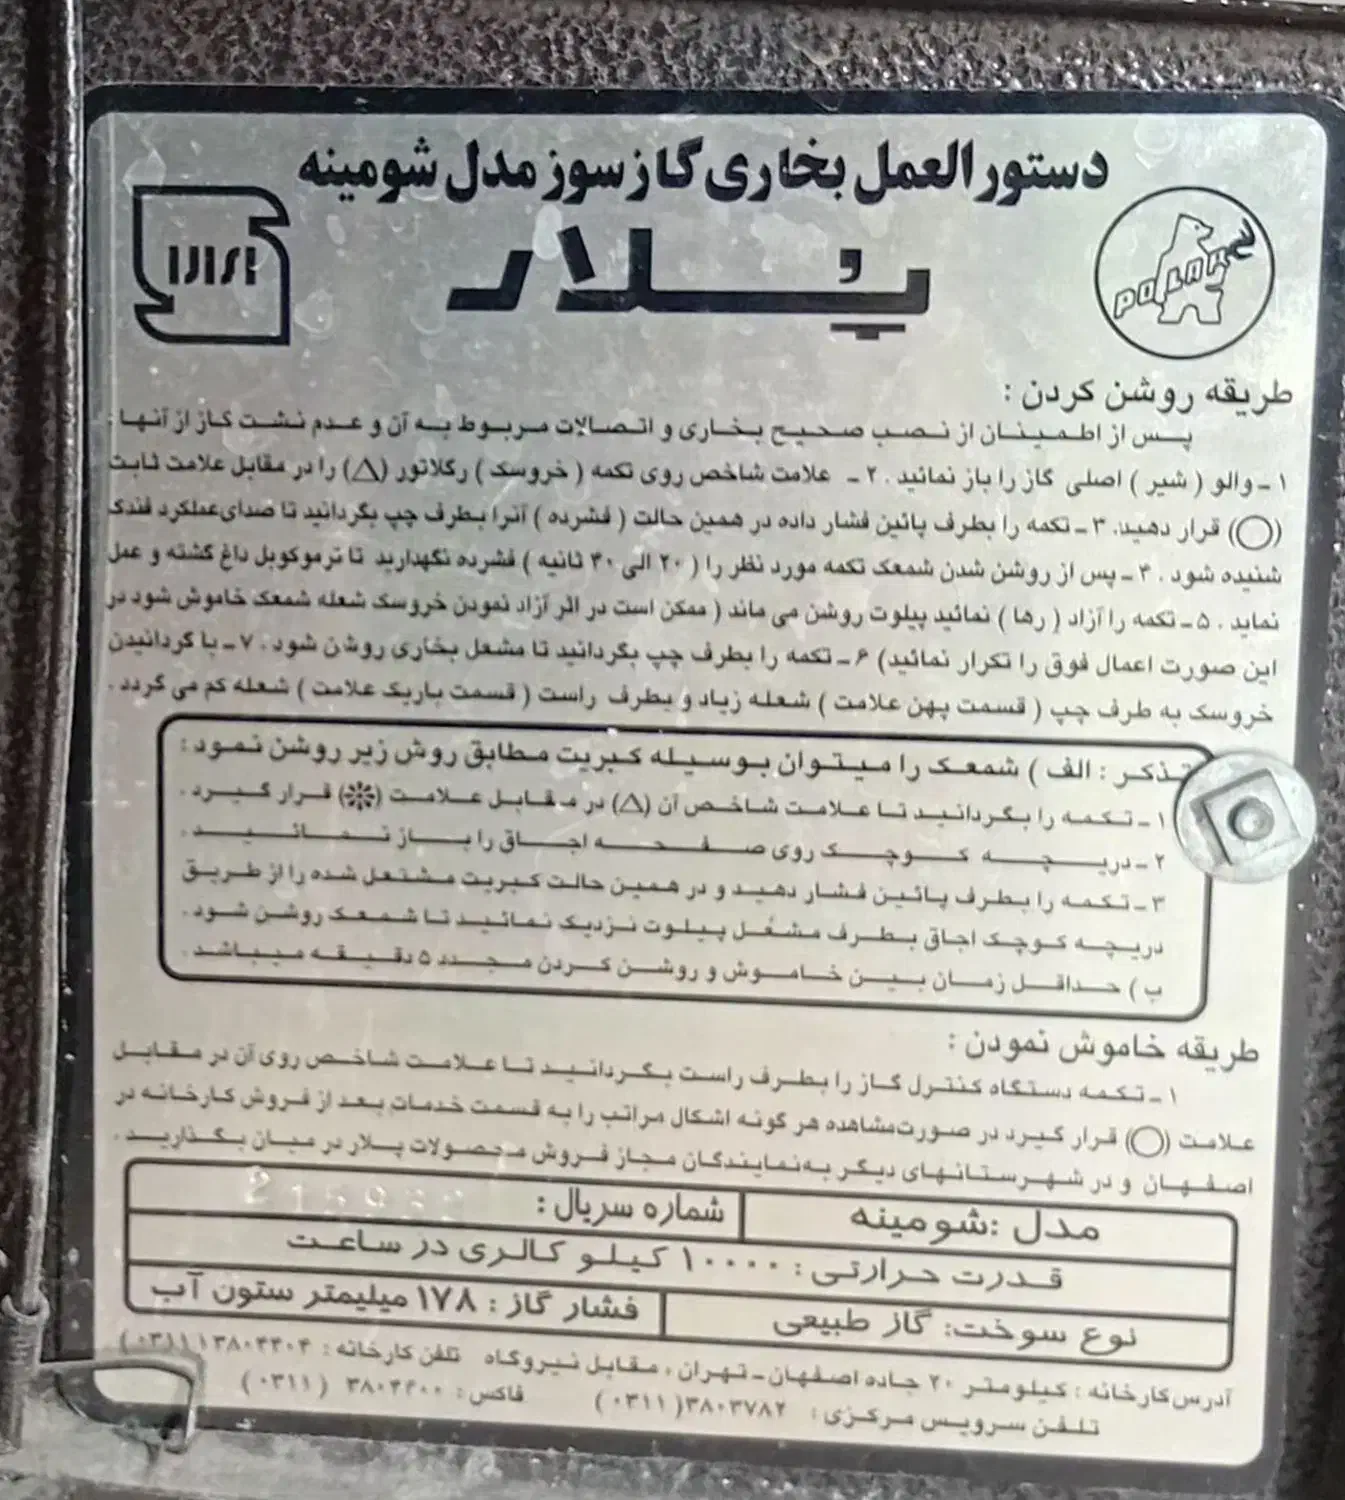 دستورالعمل بخاری گاز سوز مدل شومینه
پُلار
POLAR
طریقه روشن کردن :
پس از اطمینان از نصب صحیح بخاری و اتصالات مربوط به آن و عدم نشت گاز از آنها :
۱ - والو ( شیر ) اصلی گاز را باز نمائید . ۲ - علامت شاخص روی تکمه ( خروسک ) رگلاتور (△) را در مقابل علامت ثابت
(◯) قرار دهید. ۳ - تکمه را بطرف پائین فشار داده در همین حالت ( فشرده ) آنرا بطرف چپ بگردانید تا صدای عملکرد فندک
شنیده شود . ۴ - پس از روشن شدن شمعک تکمه مورد نظر را ( ۲۰ الی ۳۰ ثانیه ) فشرده نگهدارید تا ترموکوبل داغ گشته و عمل
نماید . ۵ - تکمه را آزاد ( رها ) نمائید پیلوت روشن می ماند ( ممکن است در اثر آزاد نمودن خروسک شعله شمعک خاموش شود در
این صورت اعمال فوق را تکرار نمائید) ۶ - تکمه را بطرف چپ بگردانید تا مشعل بخاری روشن شود . ۷ - با گردانیدن
خروسک به طرف چپ ( قسمت پهن علامت ) شعله زیاد و بطرف راست ( قسمت باریک علامت ) شعله کم می گردد .
تذکر : الف ) شمعک را میتوان بوسیله کبریت مطابق روش زیر روشن نمود :
۱ - تکمه را بگردانید تا علامت شاخص آن (△) در مقابل علامت (❊) قرار گیرد .
۲ - دریچه کوچک روی صفحه اجاق را باز نمائید .
۳ - تکمه را بطرف پائین فشار دهید و در همین حالت کبریت مشتعل شده را از طریق
دریچه کوچک اجاق بطرف مشعل پیلوت نزدیک نمائید تا شمعک روشن شود .
ب ) حداقل زمان بین خاموش و روشن کردن مجدد ۵ دقیقه میباشد .
طریقه خاموش نمودن :
۱ - تکمه دستگاه کنترل گاز را بطرف راست بگردانید تا علامت شاخص روی آن در مقابل
علامت (◯) قرار گیرد در صورت مشاهده هر گونه اشکال مراتب را به قسمت خدمات بعد از فروش کارخانه در
اصفهان و در شهرستانهای دیگر به نمایندگان مجاز فروش محصولات پلار در میان بگذارید .
مدل : شومینه شماره سریال :
قدرت حرارتی : ۱۰۰۰۰ کیلو کالری در ساعت
نوع سوخت: گاز طبیعی فشار گاز : ۱۷۸ میلیمتر ستون آب
آدرس کارخانه : کیلومتر ۲۰ جاده اصفهان - تهران ، مقابل نیروگاه تلفن کارخانه :
تلفن سرویس مرکزی : ۳۸۰۳۷۸۲(۰۳۱۱) فاکس : ۳۸۰۴۴۰۰ (۰۳۱۱)